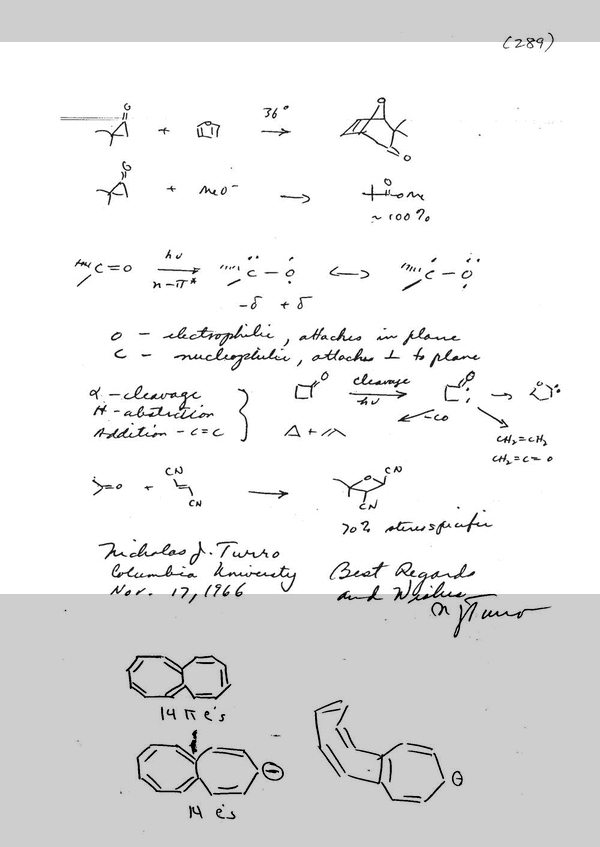 (289)
O + O 36° → O O
O + MeO⁻ → O OMe
~100%
C=O hν n-π* C - O ↔ C - O
-δ +δ
O - electrophilic, attaches in plane
C - nucleophilic, attaches ⊥ to plane
α-cleavage
H-abstraction
Addition - C=C
O cleavage hν → O → O
-CO
Δ +
CH₂=CH₂
CH₂=C=O
=O + CN CN → O CN CN
70% stereospecific
Nicholas J. Turro
Columbia University
Nov. 17, 1966
Best Regards
and Wishes
N J Turro
14 π e's
⊖
14 e's
⊖